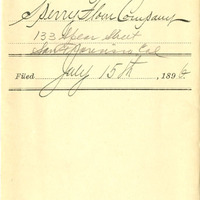 Sperry Flour Company
133 Spear Street
San Francisco Cal
Filed July 15th, 1896